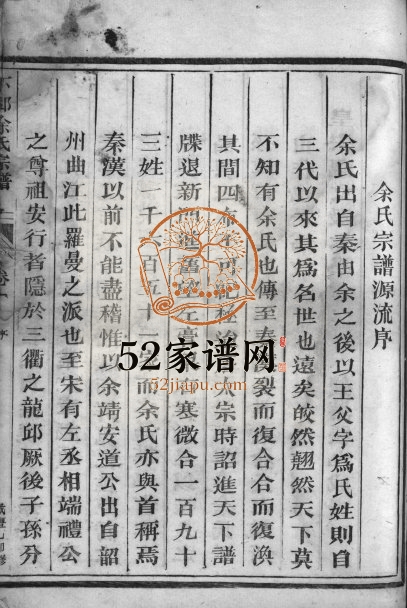 余氏宗譜源流序
余氏出自秦由余之後以王父字爲氏姓則自
三代以來其爲名世也遠矣皎然翹然天下莫
不知有余氏也傳至秦裂而復合合而復渙
其間四太宗時詔進天下譜
牒退新寒微合一百九十
三姓一千六百五十一而余氏亦與首稱焉
秦漢以前不能盡稽惟以余靖安道公出自韶
州曲江此羅曼之派也至宋有左丞相端禮公
之尊祖安行者隱於三衢之龍邱厥後子孫分
余氏宗譜
卷一
序
52家谱网
52jiapu.com